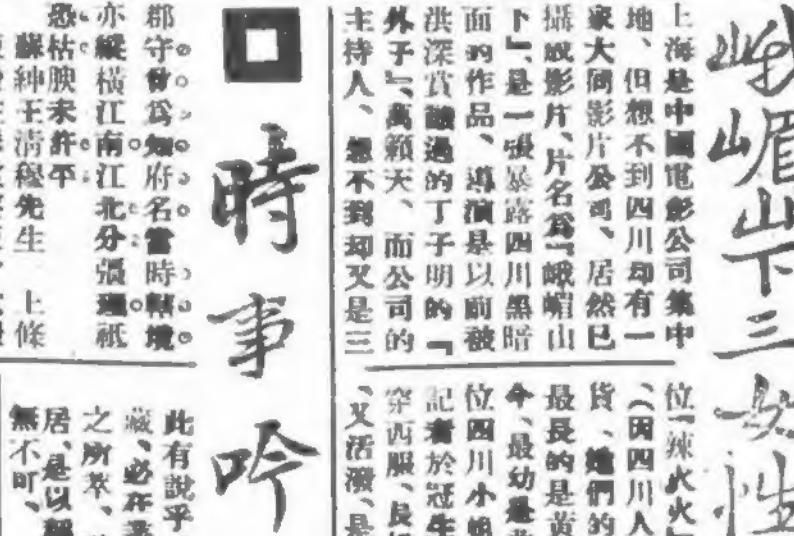 峨嵋山下三女性
上海是中國電影公司集中
地、但想不到四川却有一
家大同影片公司、居然已
攝成影片、片名爲『峨嵋山
下』、是一張暴露四川黑暗
面的作品、導演是以前被
洪深賞識過的丁子明的『
外子』、萬籟天、而公司的
主持人、想不到却又是三
位『辣火火』
、(因四川人
貨、她們的
最長的是黃
今、最幼是
位四川小姐
記者於冠生
穿西服、長
、又活潑、是
時事吟
郡守曾爲知府名當時轄境
亦縱橫江南江北分張理祇
恐枯腴未許平
蘇紳王清穆先生 上條
此有說乎
藏、必在
之所萃、
居、是以
無不可、